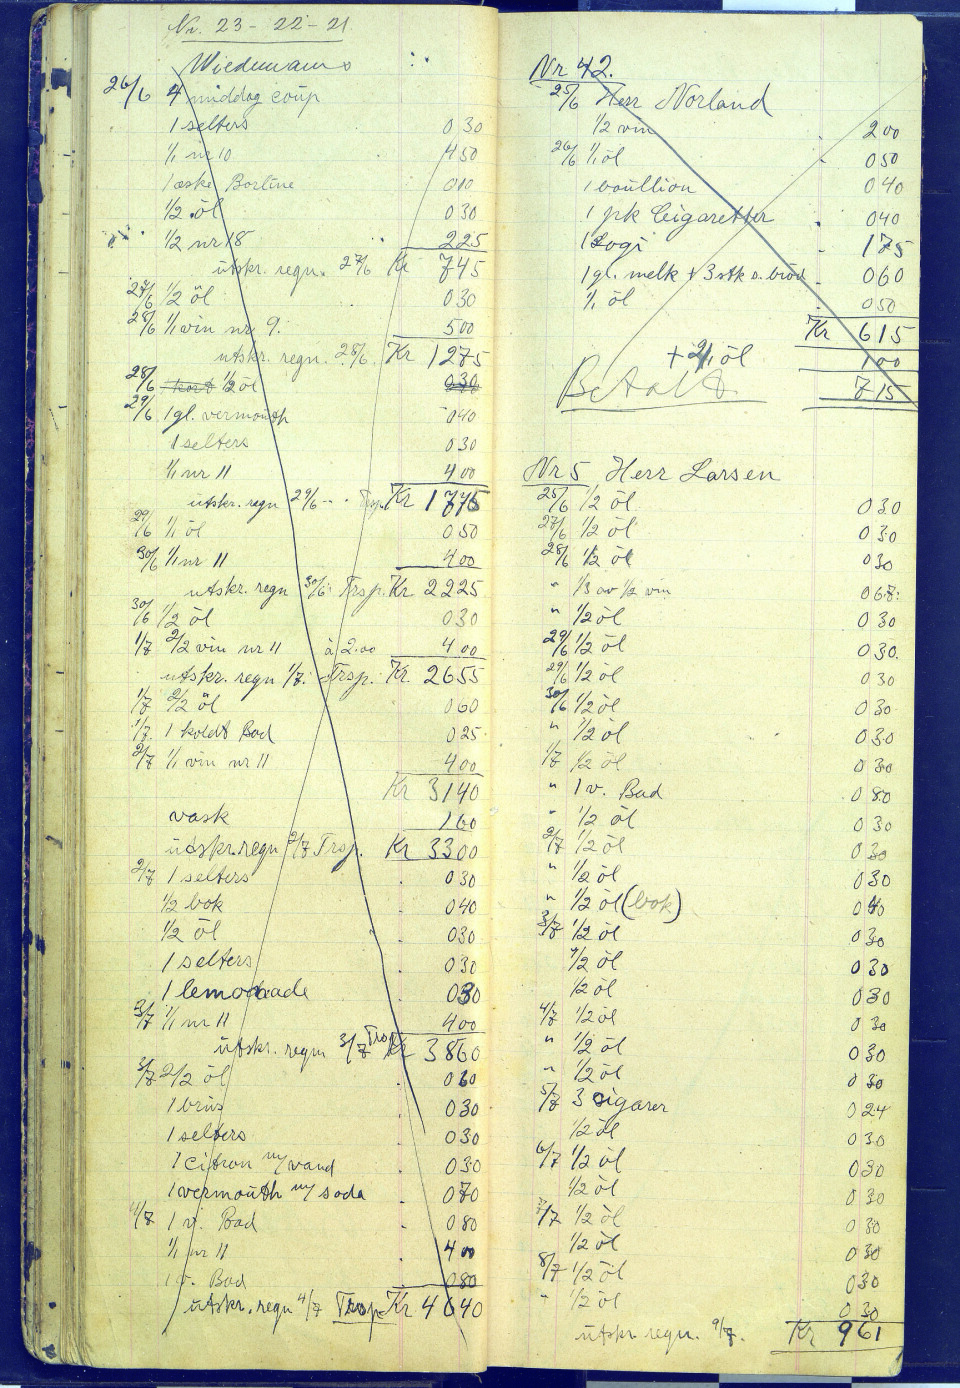 Nr. 23 - 22 - 21
Wiedemanns
26/6 4 middag coup
1 selters 0 30
1/1 nr 10 4 50
1 æske Bortine 0 10
1/2 öl 0 30
1/2 nr 18 2 25
utskr. regn. 27/6 Kr 7 45
27/6 1/2 öl 0 30
28/6 1/1 vin nr 9. 5 00
utskr. regn. 28/6. Kr 12 75
28/6 1/2 öl 0 30
29/6 1 gl. vermouth 0 40
1 selters 0 30
1/1 nr 11 4 00
utskr. regn 29/6 Trsp. Kr 17 75
29/6 1/1 öl 0 50
30/6 1/1 nr 11 4 00
utskr. regn 30/6 Trsp. Kr 22 25
30/6 1/2 öl 0 30
1/7 2/2 vin nr 11 à 2.00 4 00
utskr. regn 1/7. Trsp. Kr. 26 55
1/7 2/2 öl 0 60
1/7. 1 koldt Bad 0 25
2/7 1/1 vin nr 11 4 00
Kr 31 40
vask 1 60
udskr. regn 2/7 Trsp. Kr 33 00
2/7 1 selters 0 30
1/2 bok 0 40
1/2 öl 0 30
1 selters 0 30
1 lemonade 0 30
3/7 1/1 nr 11 4 00
utskr. regn 3/7 Trsp Kr 38 60
3/7 2/2 öl 0 60
1 brus 0 30
1 selters 0 30
1 citron m/ vand 0 30
1 vermouth m/ soda 0 70
4/7 1 v. Bad 0 80
1/1 nr 11 4 00
1 v. Bad 0 80
utskr. regn 4/7 Trsp Kr 46 40
Nr 42.
25/6 Herr Norland
1/2 vin 2 00
26/6 1/1 öl 0 50
1 boullion 0 40
1 pk Cigaretter 0 40
1 Logi 1 75
1 gl. melk + 3 stk o. bröd 0 60
1/1 öl 0 50
Kr 6 15
+ 2/1 öl 1 00
Betalt 7 15
Nr 5 Herr Larsen
25/6 1/2 öl 0 30
27/6 1/2 öl 0 30
28/6 1/2 öl 0 30
" 1/3 av 1/2 vin 0 67
" 1/2 öl 0 30
29/6 1/2 öl 0 30.
29/6 1/2 öl 0 30
30/6 1/2 öl 0 30
" 1/2 öl 0 30
1/7 1/2 öl 0 30
" 1 v. Bad 0 80
" 1/2 öl 0 30
2/7 1/2 öl 0 30
" 1/2 öl 0 30
" 1/2 öl (bok) 0 40
3/7 1/2 öl 0 30
1/2 öl 0 30
1/2 öl 0 30
4/7 1/2 öl 0 30
" 1/2 öl 0 30
" 1/2 öl 0 30
5/7 3 sigarer 0 24
1/2 öl 0 30
6/7 1/2 öl 0 30
1/2 öl 0 30
7/7 1/2 öl 0 30
1/2 öl 0 30
8/7 1/2 öl 0 30
" 1/2 öl 0 30
utskr. regn. 9/7. Kr 9 61